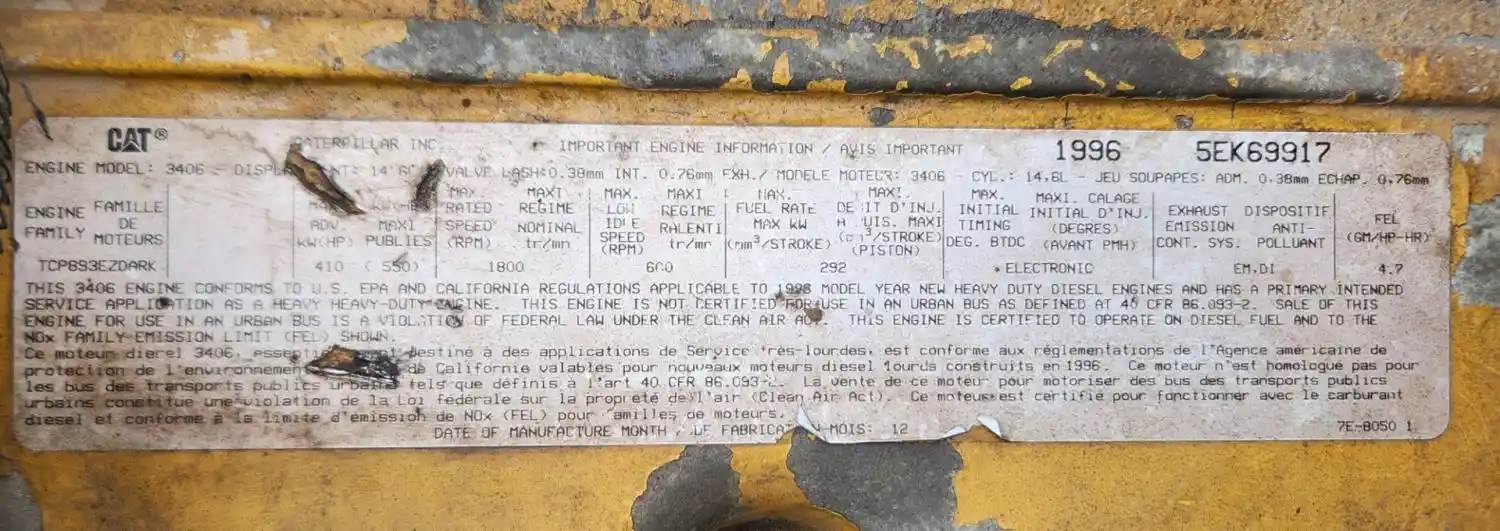 CAT® CATERPILLAR INC. IMPORTANT ENGINE INFORMATION / AVIS IMPORTANT 1996 5EK69917
ENGINE MODEL: 3406 - 14.6L VALVE LASH:0.38mm INT. 0.76mm EXH./ MODELE MOTEUR: 3406 - CYL.: 14.6L - JEU SOUPAPES: ADM. 0.38mm ECHAP. 0.76mm
ENGINE FAMILY
FAMILLE DE MOTEURS
ADV. kW(HP)
MAXI PUBLIES
MAX. RATED SPEED (RPM)
MAXI REGIME NOMINAL tr/mn
MAX. LOW IDLE SPEED (RPM)
MAXI REGIME RALENTI tr/mn
MAX. FUEL RATE MAX kW (mm³/STROKE)
MAXI. D'INJ. MAXI (PISTON)
MAX. INITIAL TIMING DEG. BTDC
MAXI. CALAGE INITIAL D'INJ. (DEGRES) (AVANT PMH)
EXHAUST EMISSION CONT. SYS.
DISPOSITIF ANTI- POLLUANT
FEL (GM/HP-HR)
TCP893EZDARK 410 (550) 1800 600 292 ELECTRONIC EM,DI 4.7
THIS 3406 ENGINE CONFORMS TO U.S. EPA AND CALIFORNIA REGULATIONS APPLICABLE TO MODEL YEAR NEW HEAVY DUTY DIESEL ENGINES AND HAS A PRIMARY INTENDED
SERVICE APPLICATION AS A HEAVY HEAVY-DUTY ENGINE. THIS ENGINE IS NOT CERTIFIED FOR USE IN AN URBAN BUS AS DEFINED AT 40 CFR 86.093-2. SALE OF THIS
ENGINE FOR USE IN AN URBAN BUS IS A VIOLATION OF FEDERAL LAW UNDER THE CLEAN AIR ACT. THIS ENGINE IS CERTIFIED TO OPERATE ON DIESEL FUEL AND TO THE
NOx FAMILY EMISSION LIMIT (FEL) SHOWN.
Ce moteur 3406, destiné à des applications de Service très-lourdes, est conforme aux réglementations de l'Agence américaine de
protection de l'environnement de California valables pour nouveaux moteurs diesel lourds construits en 1996. Ce moteur n'est homologué pas pour
les bus des transports publics urbains tels que définis à l'art 40 CFR 86.093-2. La vente de ce moteur pour motoriser des bus des transports publics
urbains constitue une violation de la Loi fédérale sur la propreté de l'air (Clean Air Act). Ce moteur est certifié pour fonctionner avec le carburant
diesel et conforme à la limite d'émission de NOx (FEL) pour familles de moteurs.
DATE OF MANUFACTURE MONTH / MOIS: 12 7E-8050 1